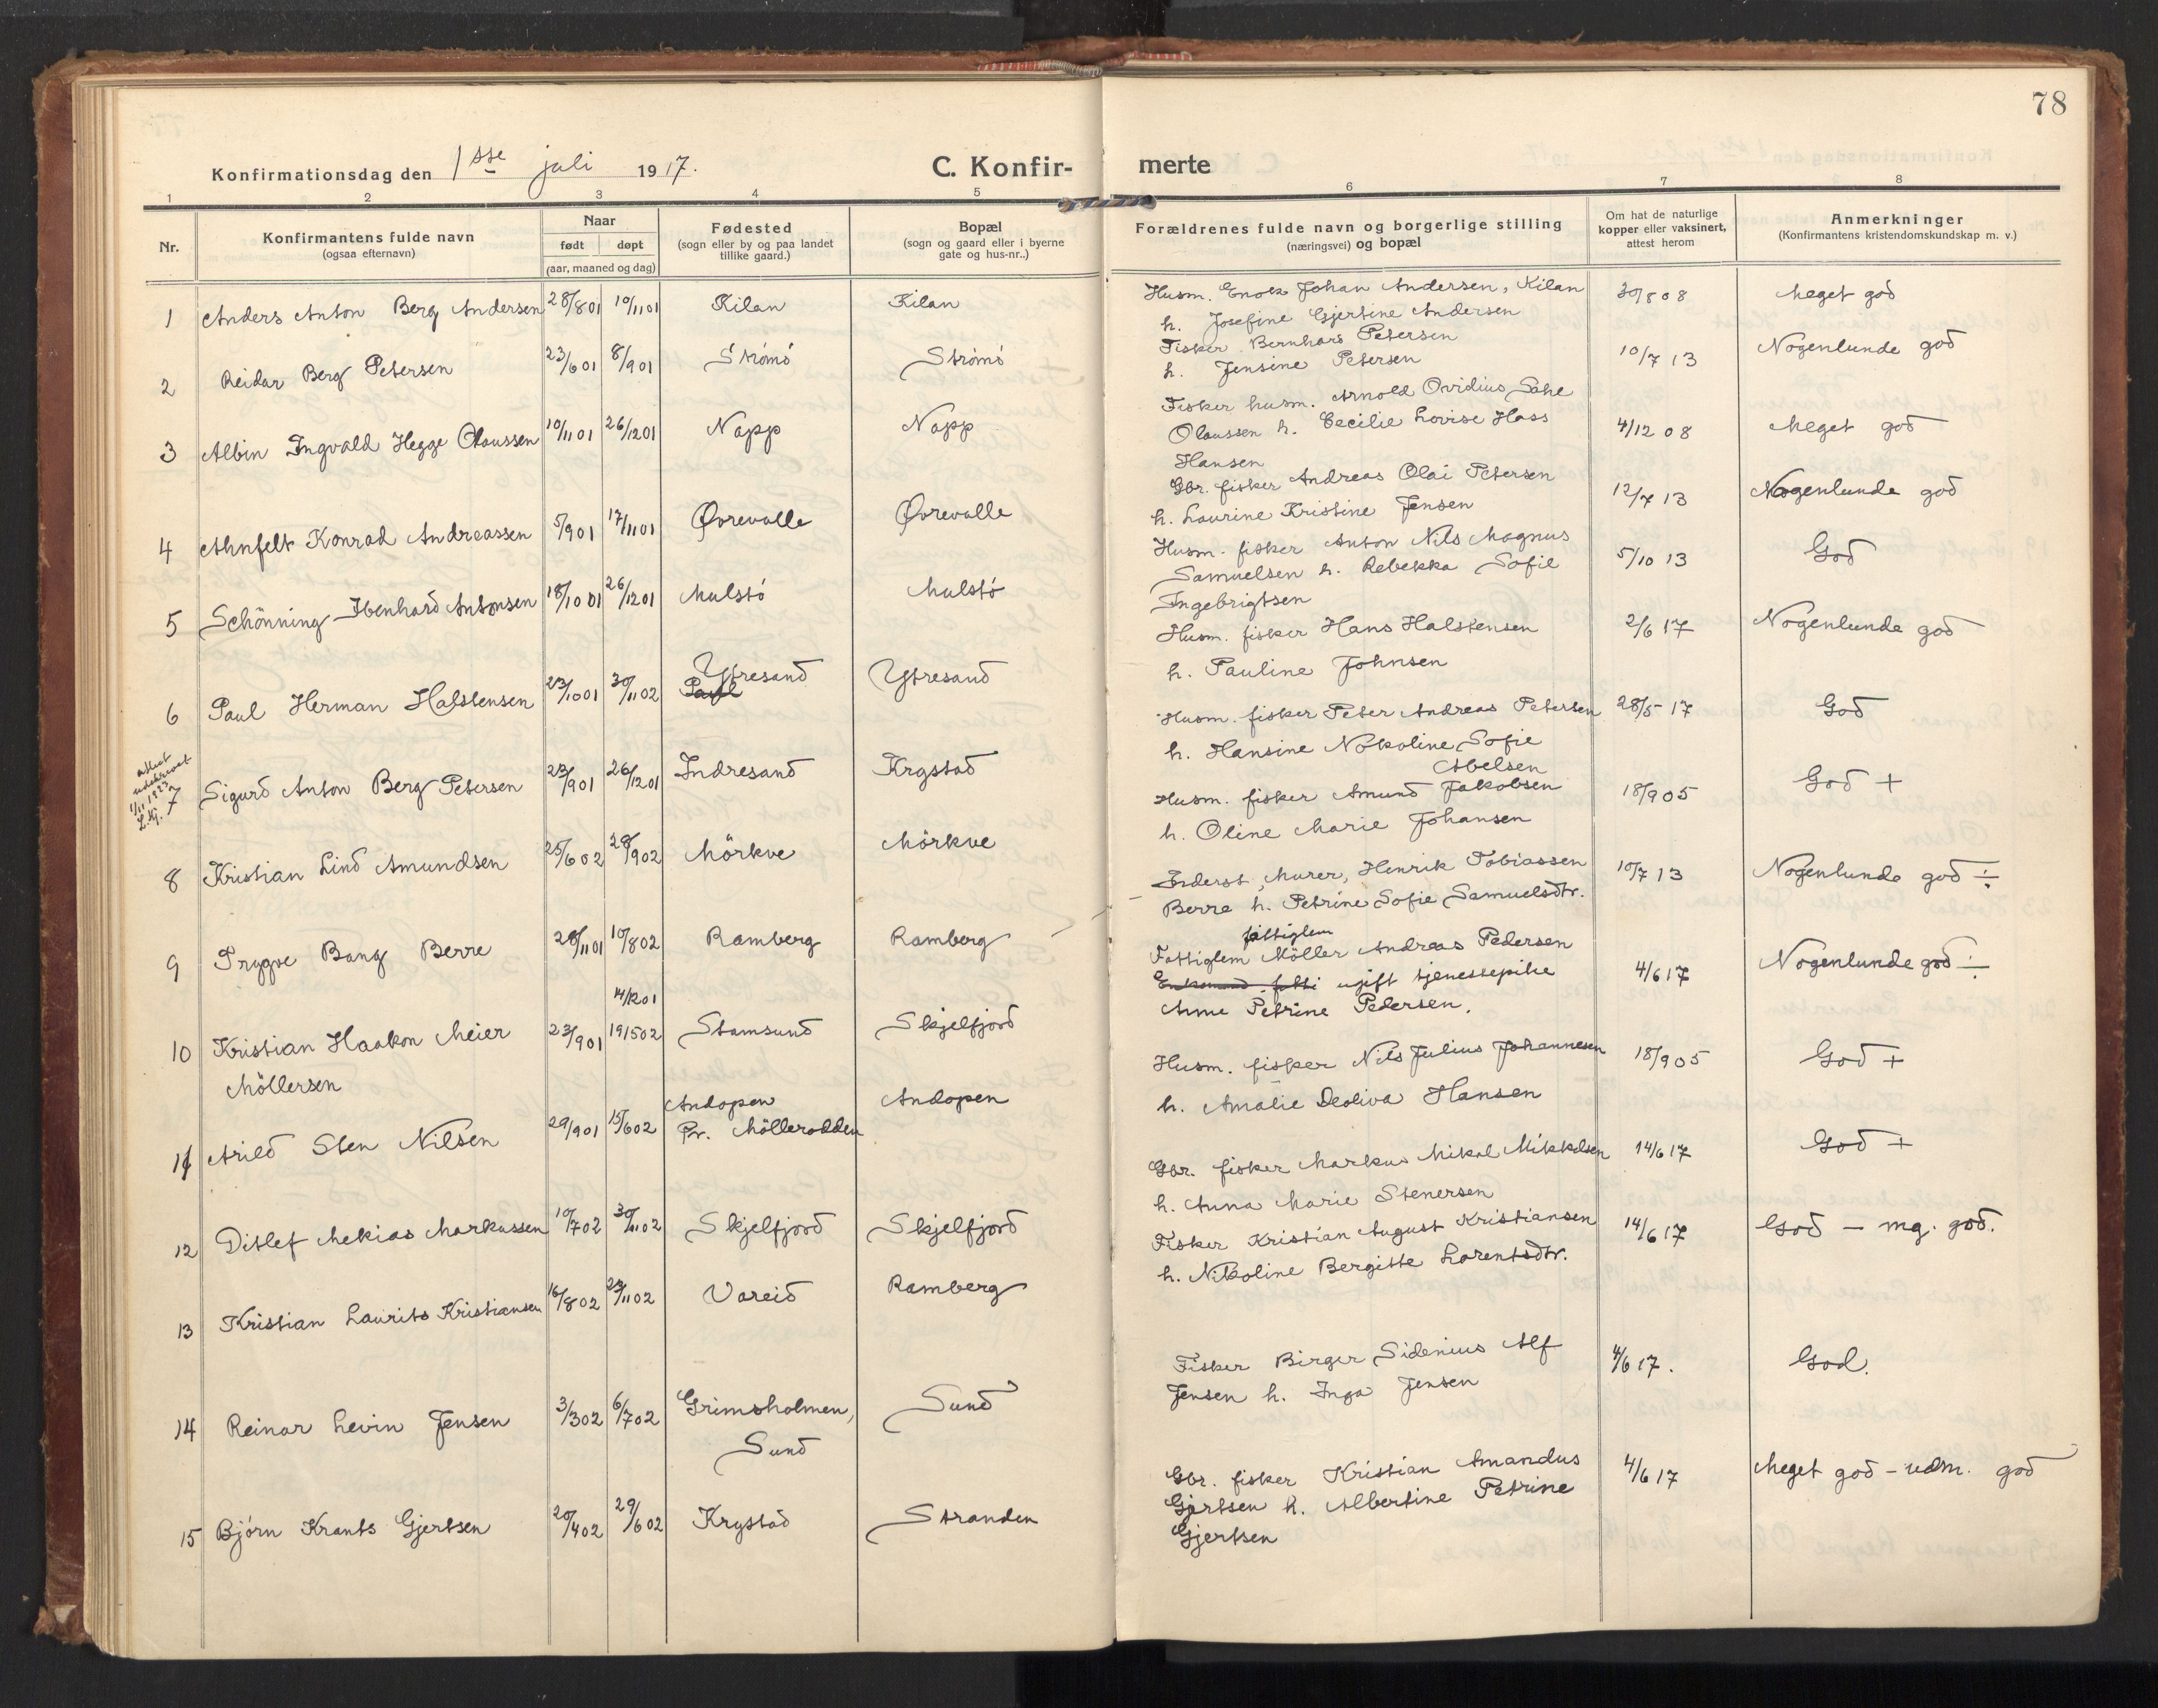 78
Konfirmationsdag den 1ste juli 1917.
C. Konfir-
merte
1 2 3 4 5 6 7 8
Nr.
Konfirmantens fulde navn
(ogsaa efternavn)
Naar
født døpt
(aar, maaned og dag)
Fødested
(sogn eller by og paa landet
tillike gaard.)
Bopæl
(sogn og gaard eller i byerne
gate og hus-nr..)
Forældrenes fulde navn og borgerlige stilling
(næringsvei) og bopæl
Om hat de naturlige
kopper eller vaksinert,
attest herom
Anmerkninger
(Konfirmantens kristendomskundskap m. v.)
1 Anders Anton Berg Andersen 28/8 01 10/11 01 Kilan Kilan
Husm. Enok Johan Andersen, Kilan 30/8 08 Meget god
h. Josefine Gjertine Andersen
2 Reidar Berg Petersen 23/6 01 8/9 01 Strömö Strömö
Fisker Bernhard Petersen
h. Jensine Petersen 10/7 13 Nogenlunde god
3 Albin Ingvald Hegge Olaussen 10/11 01 26/12 01 Napp Napp
Fisker husm. Arnold Ovidius
Olaussen h. Cecilie Lovise Hass 4/12 08 Meget god
Hansen
4 Ahnfelt Konrad Andreassen 5/9 01 17/11 01 Øvrevalle Øvrevalle
Gbr. fisker Andreas Olai Petersen 12/7 13 Nogenlunde god
h. Laurine Kristine Jensen
5 Schönning Ibenhard Antonsen 18/10 01 26/12 01 Mulstö Mulstö
Husm. fisker Anton Nils Magnus
Samuelsen h. Rebekka Sofie 5/10 13 God
Ingebrigtsen
6 Paul Herman Halstensen 23/10 01 30/11 02 Paul Ytresand Ytresand
Husm. fisker Hans Halstensen 2/6 17 Nogenlunde god
h. Pauline Johnsen
attest
utskrevet
1/11 1923
L. Kj.
7 Sigurd Anton Berg Petersen 23/9 01 26/12 01 Indresand Krystad
Husm. fisker Peter Andreas Petersen 28/5 17 God
h. Hansine Nokoline Sofie
Abelsen
8 Kristian Lind Amundsen 25/6 02 28/9 02 Mörkve Mörkve
Husm. fisker Amund Jakobsen 18/9 05 God +
h. Oline Marie Johansen
9 Trygve Bang Berre 28/11 01 10/8 02 Ramberg Ramberg
Inderst, Murer, Henrik Tobiassen 10/7 13 Nogenlunde god ÷
Berre h. Petrine Sofie Samuelsdtr.
14/12 01
10 Kristian Haakon Meier 23/9 01 19/5 02 Stamsund Skjelfjord
Möllersen
fattiglem
Fattiglem Möller Andreas Pedersen
ugift tjenestepike 4/6 17 Nogenlunde god ÷
Anne Petrine Pedersen.
11 Arild Sten Nilsen 29/9 01 15/6 02 Andopen Andopen
Pr. Mölleradden
Husm. fisker Nils Julius Johannesen 18/9 05 God +
h. Amalie Deoliva Hansen
12 Ditlef Mekias Markussen 10/7 02 30/11 02 Skjelfjord Skjelfjord
Gbr. fisker Markus Mikal Mikkelsen 14/6 17 God +
h. Anna Marie Stenersen
13 Kristian Laurits Kristiansen 16/8 02 23/11 02 Vareid Ramberg
Fisker Kristian August Kristiansen 14/6 17 God – mg. god.
h. Nikoline Bergitte Larentsdtr.
14 Reinar Levin Jensen 3/3 02 6/7 02 Grimsholmen, Sund
Sund
Fisker Birger Sidenius Alf 4/6 17. God.
Jensen h. Inga Jensen
15 Bjørn Krants Gjertsen 20/4 02 29/6 02 Krystad Stranden
Gbr. fisker Kristian Amandus 4/6 17 Meget god – udm. god
Gjertsen h. Albertine Petrine
Gjertsen